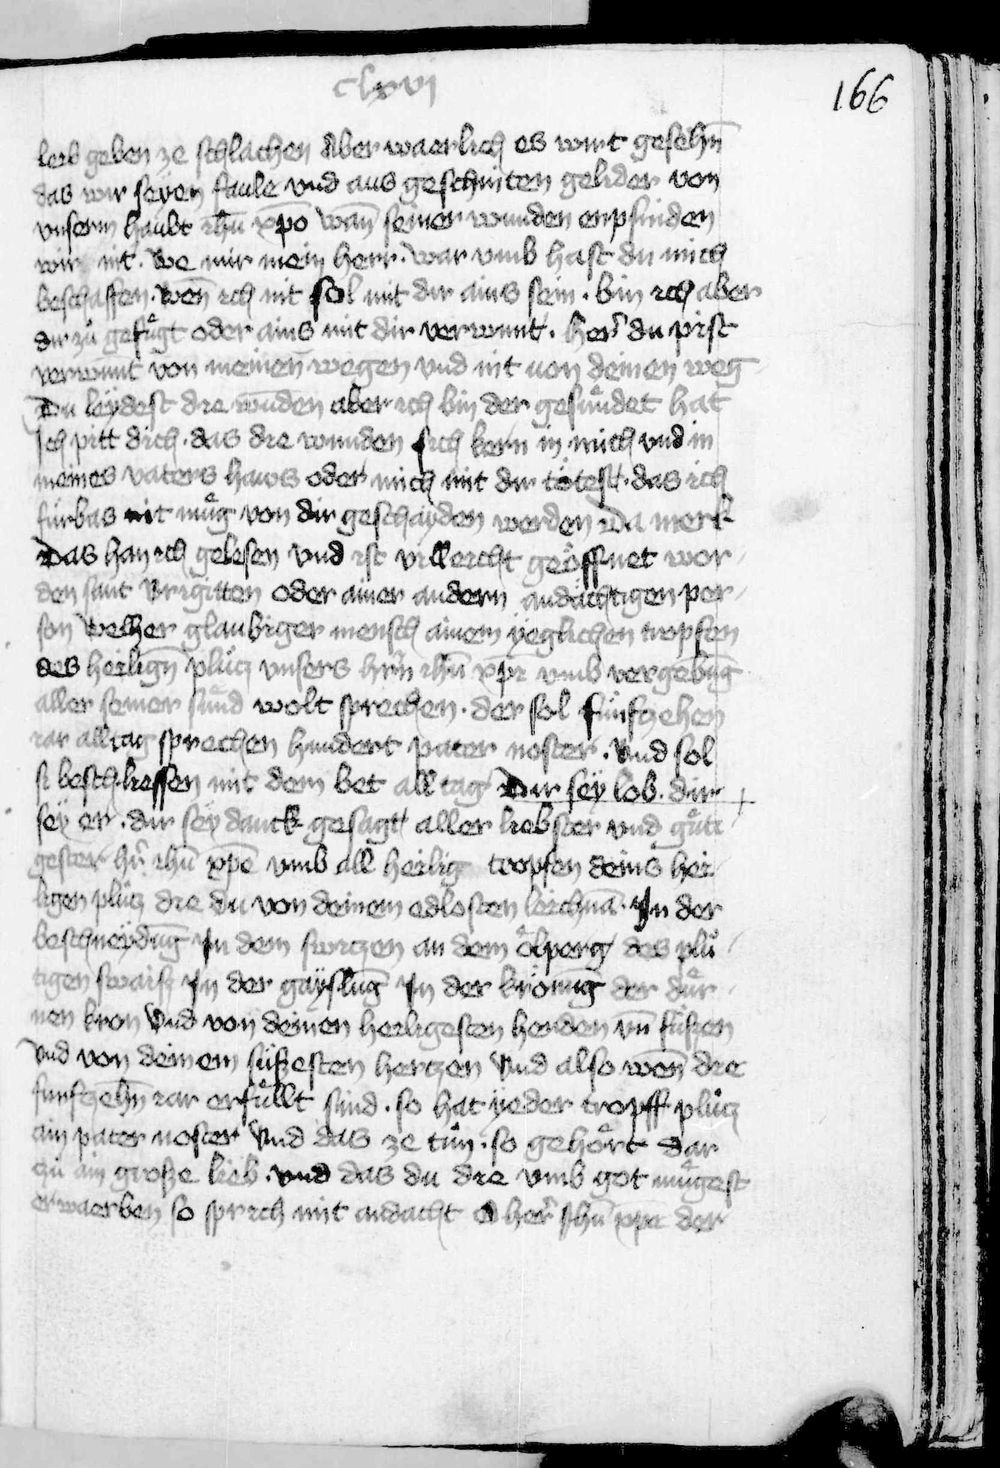 clxvi
166
leib geben ze schlachen Aber waerlich es wirt gesehn̄
das wir seyen faule vnd aus geschniten gelider von
vnserm haubt ihū xpo wan̄ seiner wunden enpfinden
wir nit. We mir mein herr. war vmb hast du mich
beschaffen. wen̄ ich nit sol mit dir ains sein. bin ich aber
dir zuͦ gefuͤgt oder ains mit dir verwunt. her̄ du pist
verwunt von meinen wegen vnd nit uon deinen weg
Du leydest die wūden aber ich bin der gesuͤndet hat
Ich pitt dich. das die wunden sich kern in mich vnd in
meines vaters haws oder mich mit dir toͤtest. das ich
fuͤrbas nit muͤg von dir geschayden werden Da merk
Das han ich gelesen vnd ist villeicht geoͤffnet wor
den sant Brigitten oder ainer andern andaͤchtigen per
son Welher glaubiger mensch ainem yeglichen tropfen
des heilign̄ pluͦtz vnsers hrn̄ ihū xp̄i vmb vergebūg
aller seiner suͤnd wolt sprechen. der sol fuͤnfzehen
iar alltag sprechen hundert pater noster. Vnd sol
si beschliessen mit dem bet all tag Dir sey lob. dir
sey er. dir sey danck gesagt aller liebster vnd guͤti
gester hr̄ ihū xpē vmb all heilig tropfen deins hei
ligen pluͦtz die du von deinem edlosten leichnā. In der
beschneydūg In dem switzen an dem oͤlperg des pluͦ
tigen swaisz In der gayslūg In der kroͤnūg der duͤr
nen kron Vnd von deinen heiligesten henden vn̄ fuͤszen
Vnd von deinem suͤszesten hertzen Vnd also wen̄ die
funfzehn̄ iar erfuͤllt sind. so hat yeder tropff pluͦtz
ain pater noster Vnd das ze tuͦn. so gehoͤrt dar
zuͦ ain grosze lieb. vnd das du die vmb got muͤgest
erwaerben so sprich mit andacht O her̄ ihū xpe der